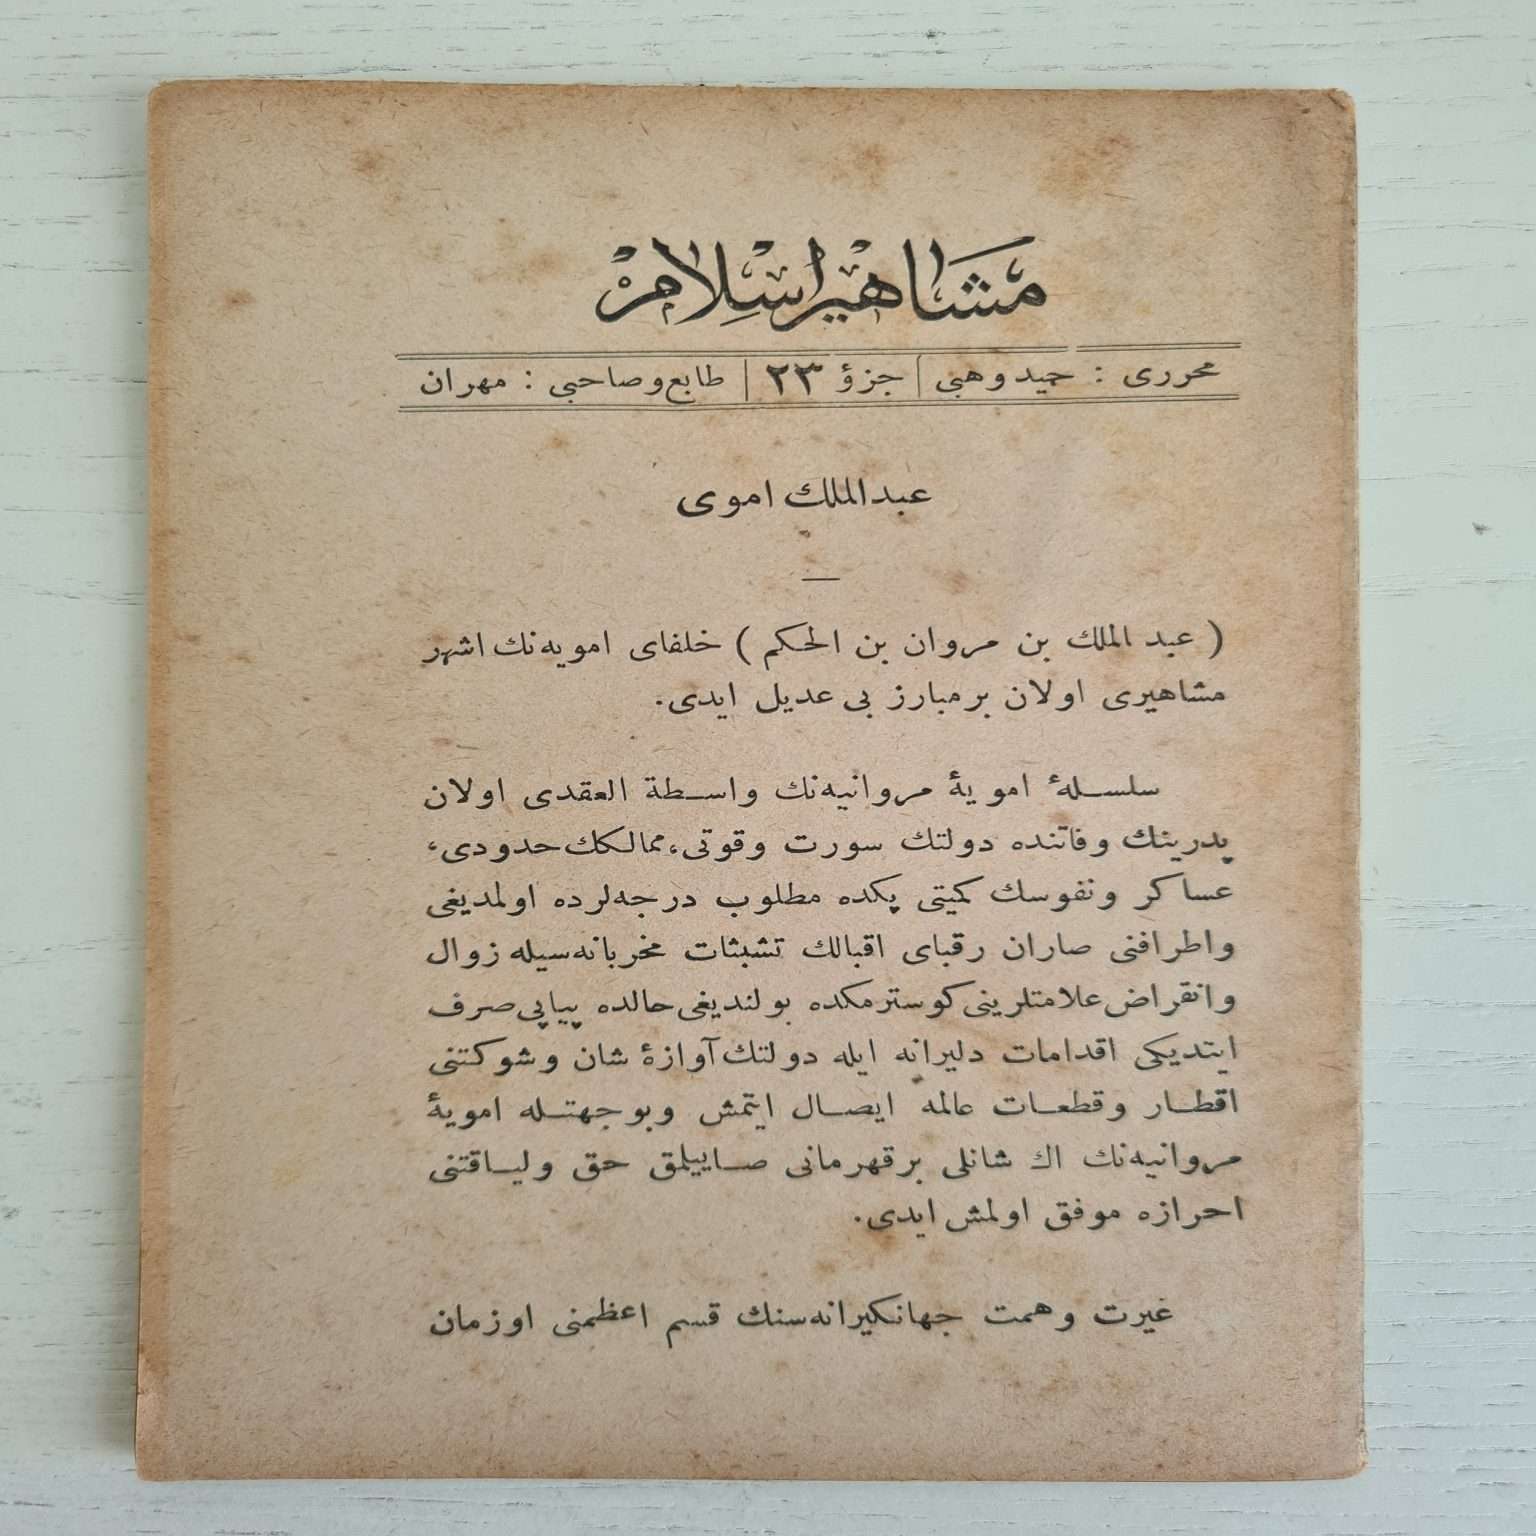 مشاهير اسلام
محررى : حميد وهبى | جزؤ ٢٣ | طابع و صاحبى : مهران
عبدالملك اموى
( عبد الملك بن مروان بن الحكم ) خلفاى امويه‌نك اشهر
مشاهيرى اولان برمبارز بى عديل ايدى.
سلسلهٔ امويهٔ مروانيه‌نك واسطة العقدى اولان
پدرينك وفاتنده دولتك سورت وقوتى، ممالكك حدودى،
عساكر ونفوسك كميتى پكده مطلوب درجه‌لرده اولمديغى
واطرافنى صاران رقباى اقبالك تشبثات مخربانه‌سيله زوال
وانقراض علامتلرينى كوسترمكده بولنديغى حالده پياپى صرف
ايتديكى اقدامات دليرانه ايله دولتك آوازهٔ شان وشوكتنى
اقطار وقطعات عالمه ايصال ايتمش وبو جهتله امويهٔ
مروانيه‌نك اك شانلى برقهرمانى صاييلمق حق ولياقتنى
احرازه موفق اولمش ايدى.
غيرت وهمت جهانكيرانه‌سنك قسم اعظمنى اوزمان